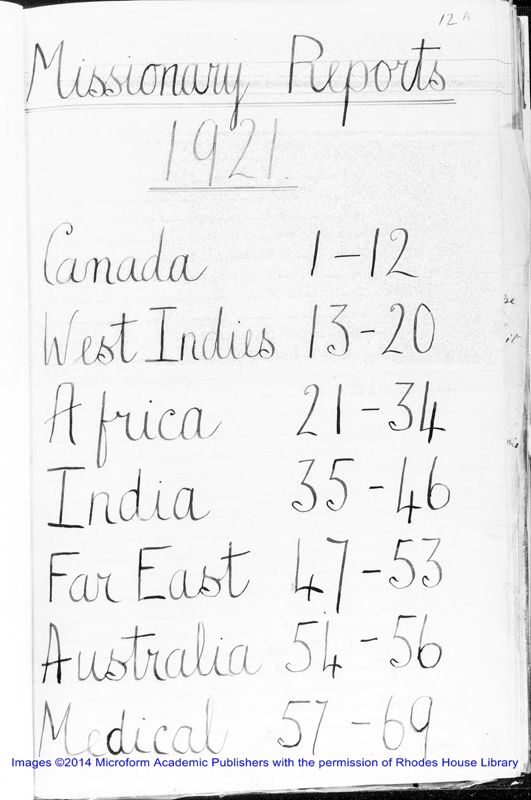 12 A
Missionary Reports
1921.
Canada 1-12
West Indies 13-20
Africa 21-34
India 35-46
Far East 47-53
Australia 54-56
Medical 57-69
Images ©2014 Microform Academic Publishers with the permission of Rhodes House Library